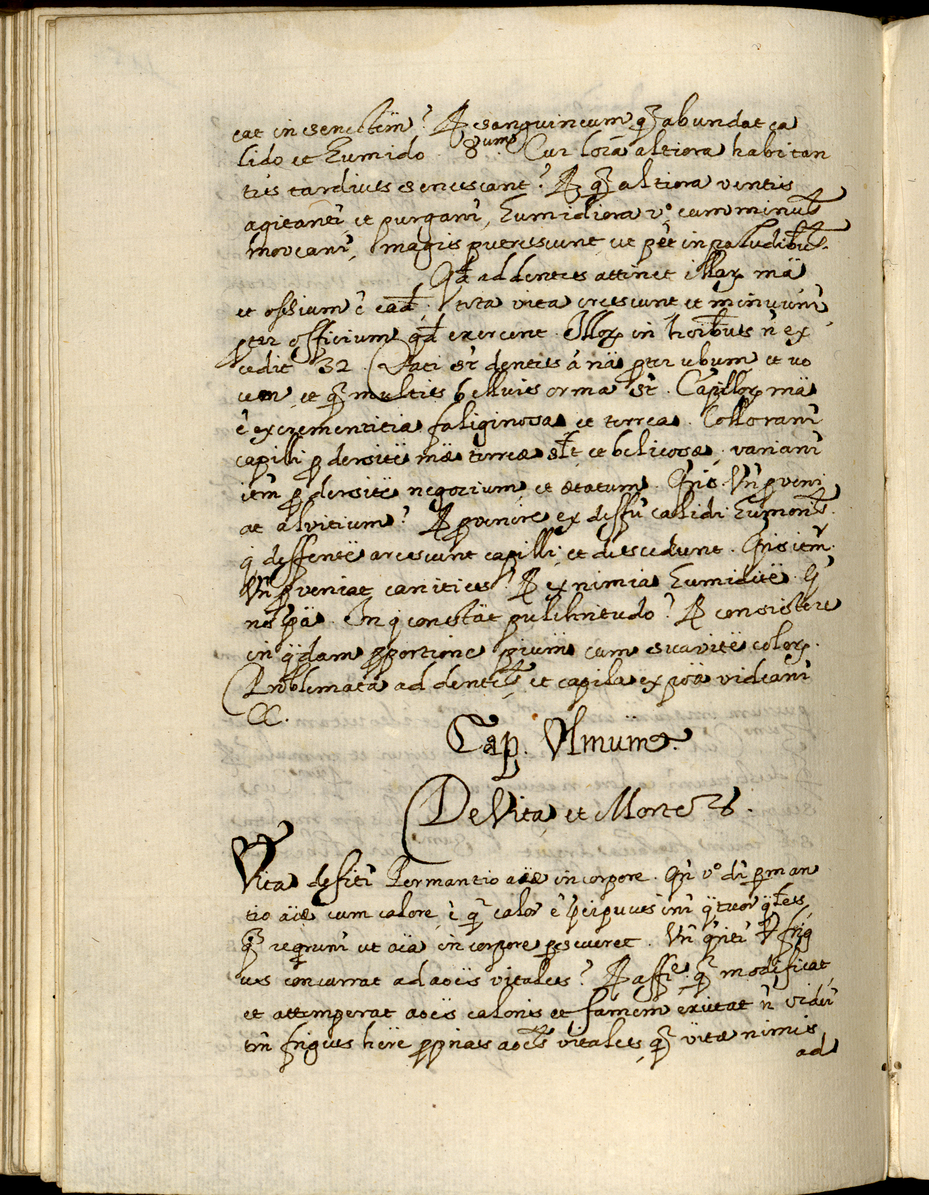 cat in senectëm? R sanguineum q̃ abundat ca
lido et humido. 8um Cur loca altiora habitan
tes tardius senescant? R q̃ altiora ventis
agitantr̃ et purganr̃, humidiora vº cum minus
moveanr̃, magis putrescunt ut pët in paludibus.
Qd̃ ad dentes attinet illor mä
et ossium ẽ ead. tota vita crescunt et minuunr̃
pter officium qd̃ exercent. Illor in hoibus ñ ex
cedit 32. Dati st̃ dentes á nä pter cibum, et vo
cem et q̃ multis belluis arma st̃. Capillor mä
ẽ excrementitia faliginosa et terrea. Colloranr̃
capilli p dersitë mæ terreæ et belicosæ, varianr̃
item p dersitë negozium, et ætatum. Qris Vñ proveni
at alvitium? R provenire ex deffũ calidi humoris.
q̃ deffentë arescunt capilli et discedunt. Qris item.
Vñ proveniat canities? R ex nimia humiditë.
In q conestät pulihritudo? R consistere
in q̈dam pportione ptium cum suavitë color.
Problemata ad dentes, et capilla expoä videanr̃
CC.
Cap. Vlmum.
De Vita, et Morte 26.
Vita defitr̃ Permantio aïæ in corpore. Qñ vº dr̃ perman
tio äiæ cum calore, ẽ q̃ calor ẽ pcipuus inr̃ q̈tuor q̈tes,
q̃ requrunr̃ ut aïa in corpore perseveret. Vñ qritr̃ V frig
us concurrat ad aoës vitales? R affe. q̃ modificat,
et attemperat aoës caloris et famem excitat ñ vidër
tm̃ frigus hëre pprias aoës vitales, q̃ vitæ nimis
ad